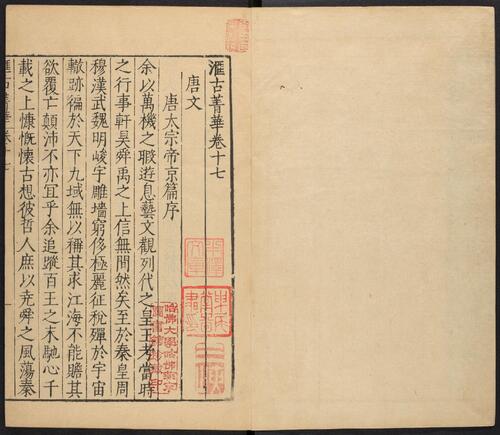 滙古菁華卷十七
唐文
唐太宗帝京篇序
余以萬機之暇遊息藝文觀列代之皇王考當時
之行事軒昊舜禹之上信無間然矣至於秦皇周
穆漢武魏明峻宇雕墻窮侈極麗征稅殫於宇宙
轍跡徧於天下九域無以稱其求江海不能贍其
欲覆亡顛沛不亦冝乎余追蹤百王之末馳心千
載之上慷慨懷古想彼哲人庶以堯舜之風蕩秦
哈佛大學哈佛燕京
圖書館珍藏印